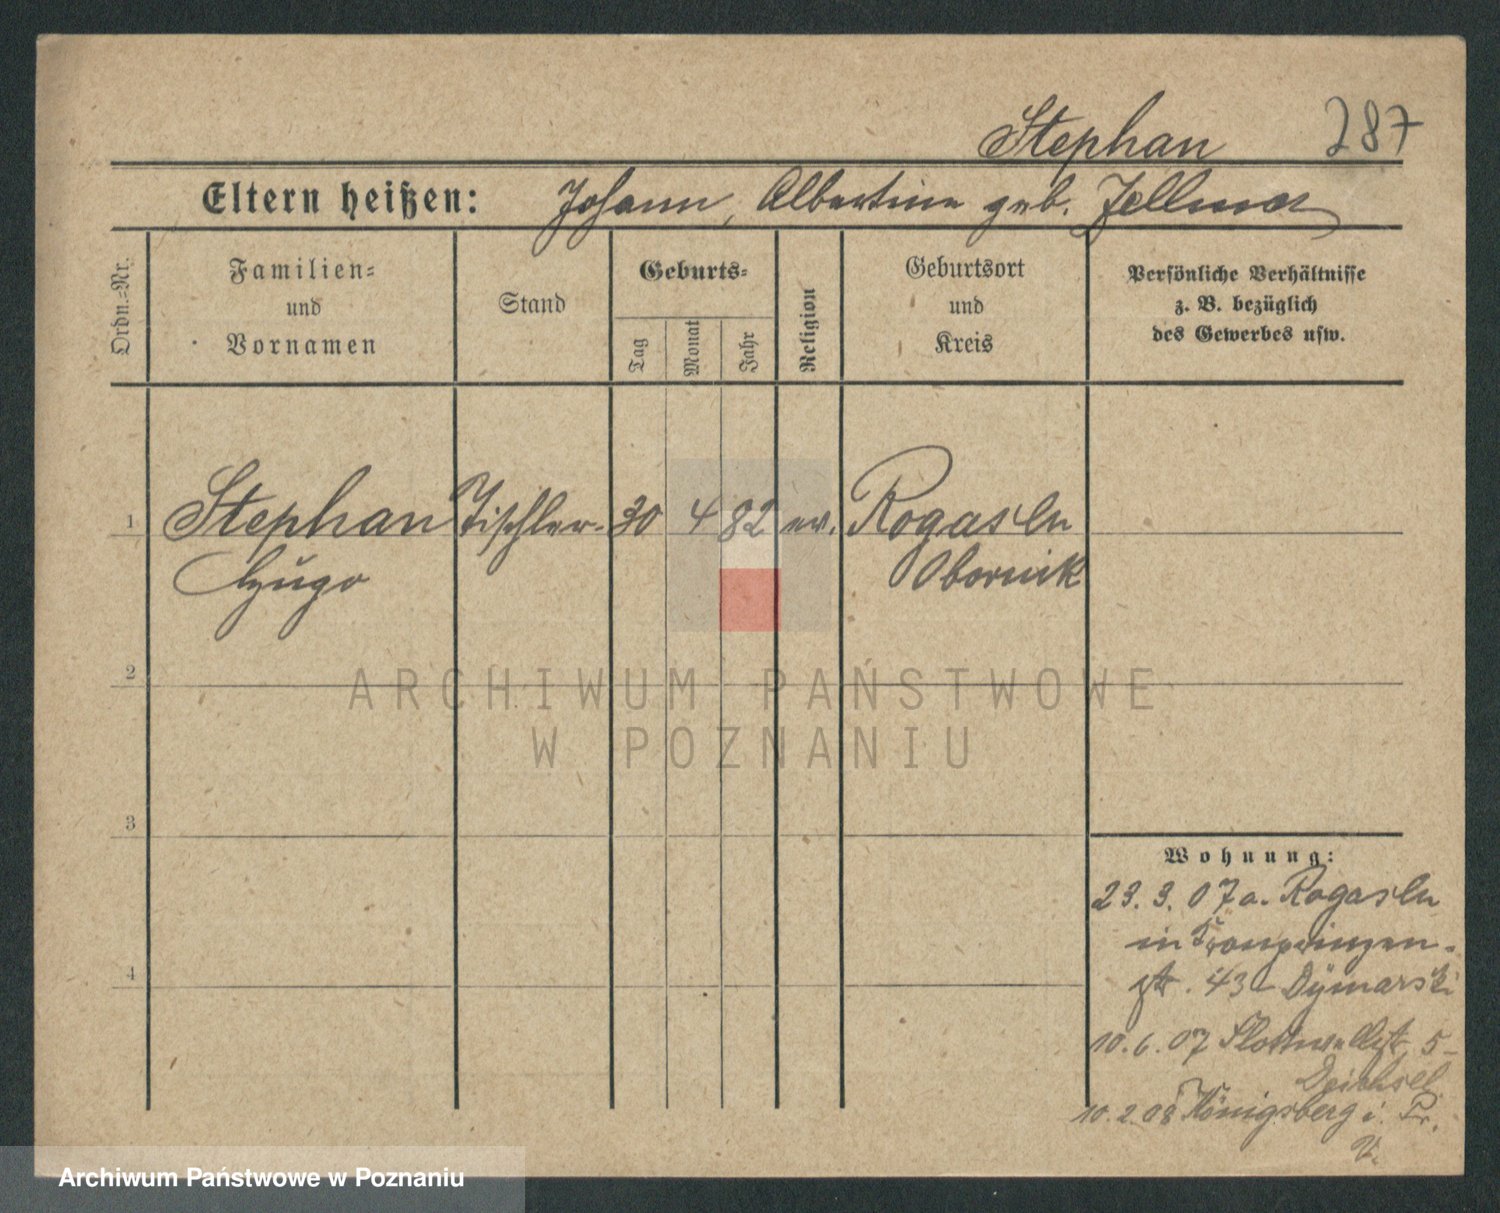 Stephan 287
Eltern heißen: Johann, Albertine geb. Zellmer
Ordn.-Nr.
Familien-
und
Vornamen
Stand
Geburts-
Tag
Monat
Jahr
Religion
Geburtsort
und
Kreis
Persönliche Verhältnisse
z. B. bezüglich
des Gewerbes usw.
1 Stephan Tischler 30 4 82 ev. Rogasen
Hugo Obornik
2
3
4
Wohnung:
23. 3. 07 a. Rogasen
in Kronprinzen-
str. 43 Dymarski
10. 6. 07 Flottwellstr. 5
10. 2. 08 Königsberg i. Pr.
V.
ARCHIWUM PAŃSTWOWE
W POZNANIU
Archiwum Państwowe w Poznaniu